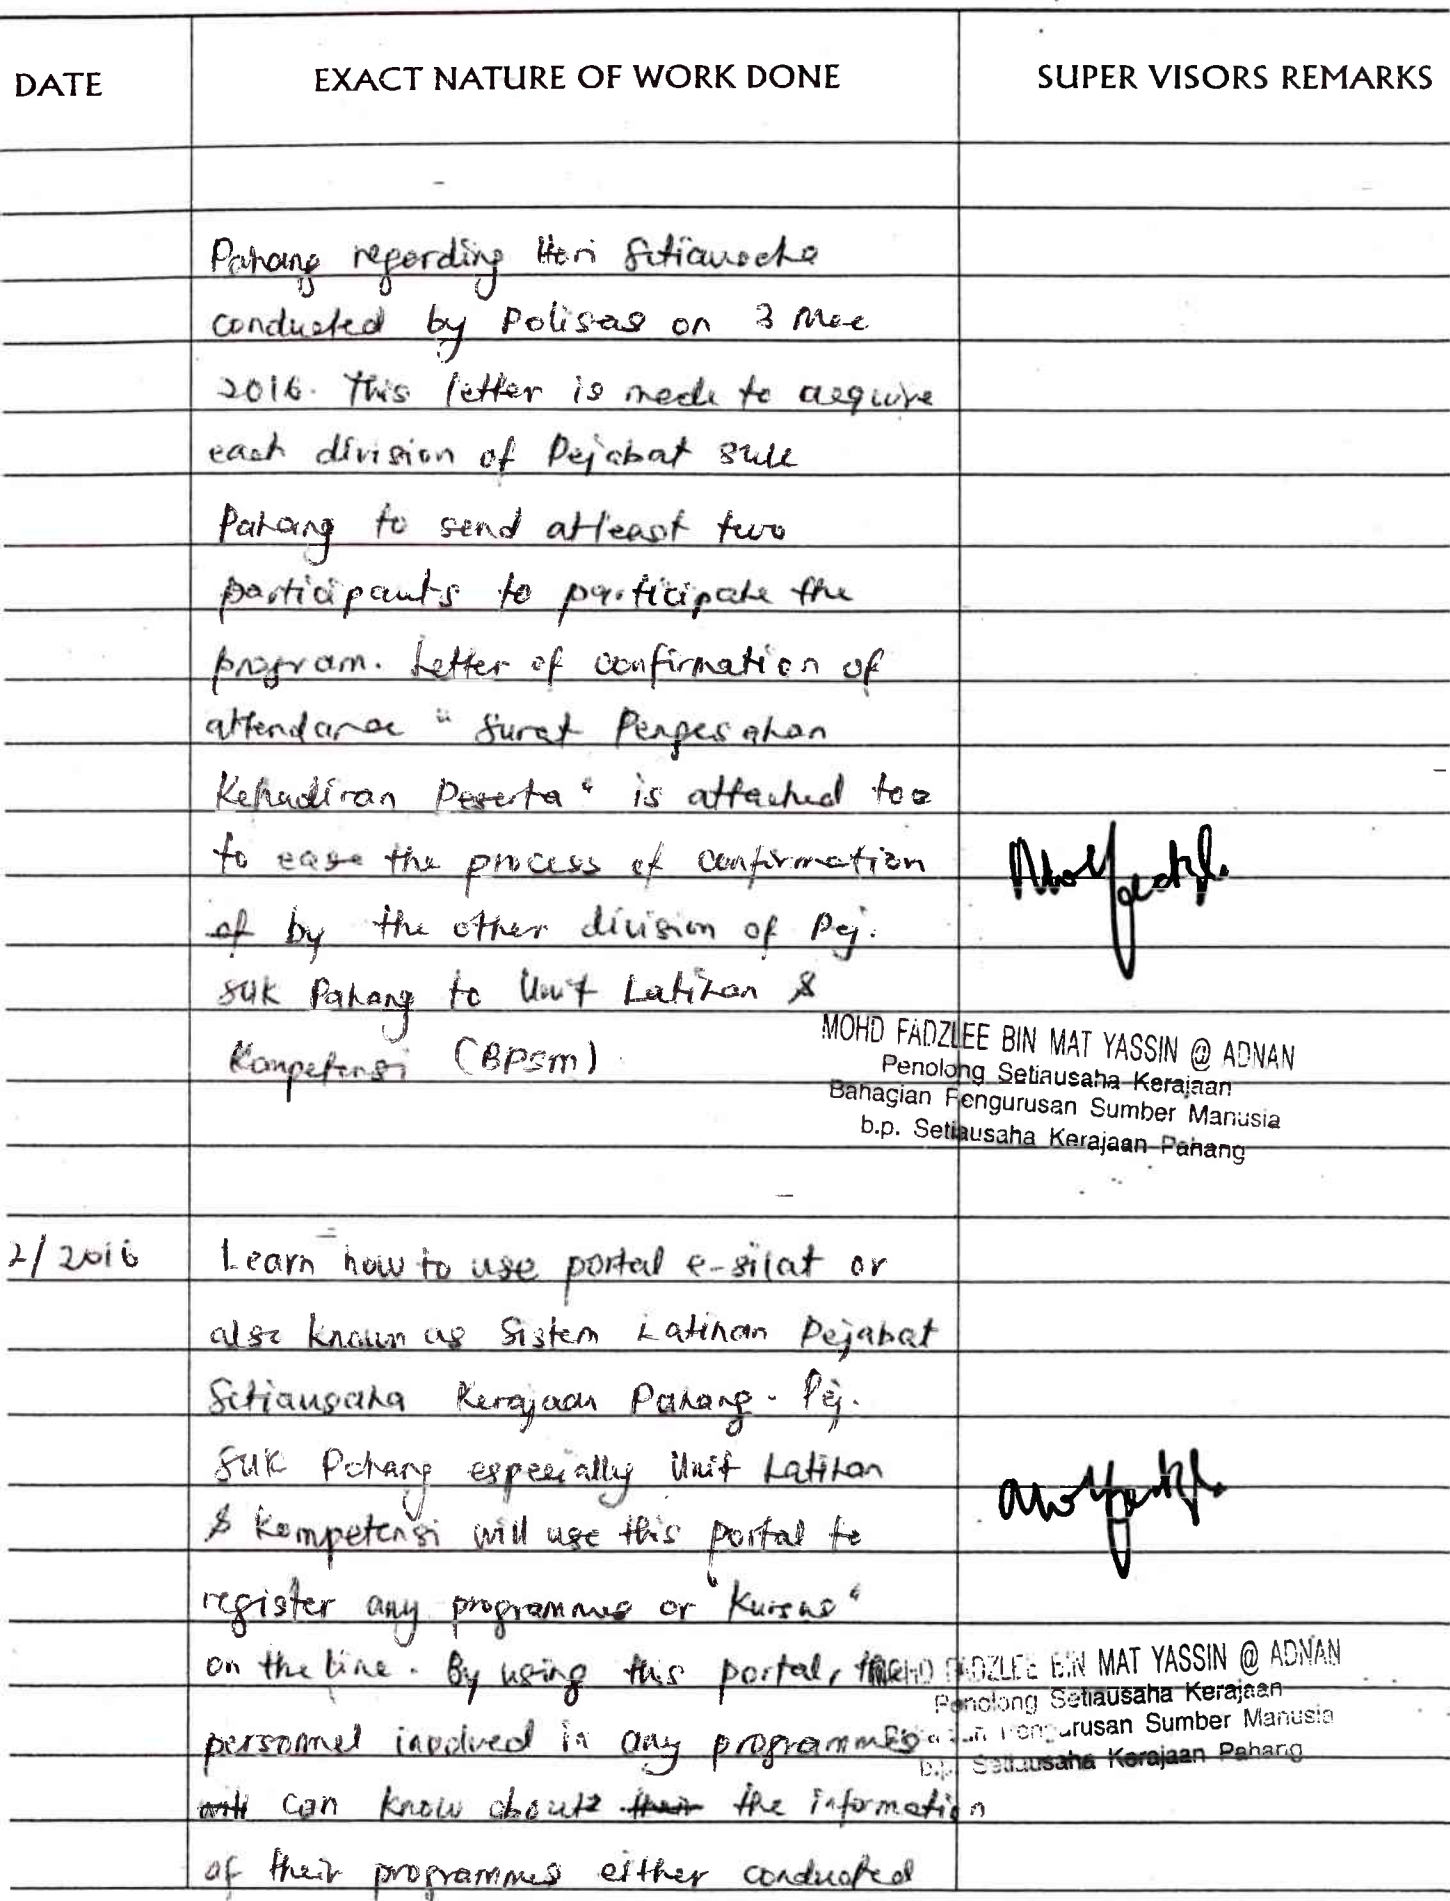 DATE EXACT NATURE OF WORK DONE SUPER VISORS REMARKS
Pahang regarding Hari Setiausaha
conducted by Polisas on 3 Mac
2016. This letter is made to acquire
each division of Pejabat SUK
Pahang to send atleast two
participants to participate the
program. Letter of confirmation of
attendance " Surat Pengesahan
Kehadiran Peserta " is attached too
to ease the process of confirmation
of by the other division of Pej.
SUK Pahang to Unit Latihan &
Kompetensi (BPSM)
MOHD FADZLEE BIN MAT YASSIN @ ADNAN
Penolong Setiausaha Kerajaan
Bahagian Pengurusan Sumber Manusia
b.p. Setiausaha Kerajaan Pahang
2/2016 Learn how to use portal e-silat or
also known as Sistem Latihan Pejabat
Setiausaha Kerajaan Pahang. Pej.
SUK Pahang especially Unit Latihan
& Kompetensi will use this portal to
register any programmes or "Kursus"
on the line. By using this portal, the
personnel involved in any programmes
will can know about their the information
of their programmes either conducted
MOHD FADZLEE BIN MAT YASSIN @ ADNAN
Penolong Setiausaha Kerajaan
Pengurusan Sumber Manusia
b.p. Setiausaha Kerajaan Pahang